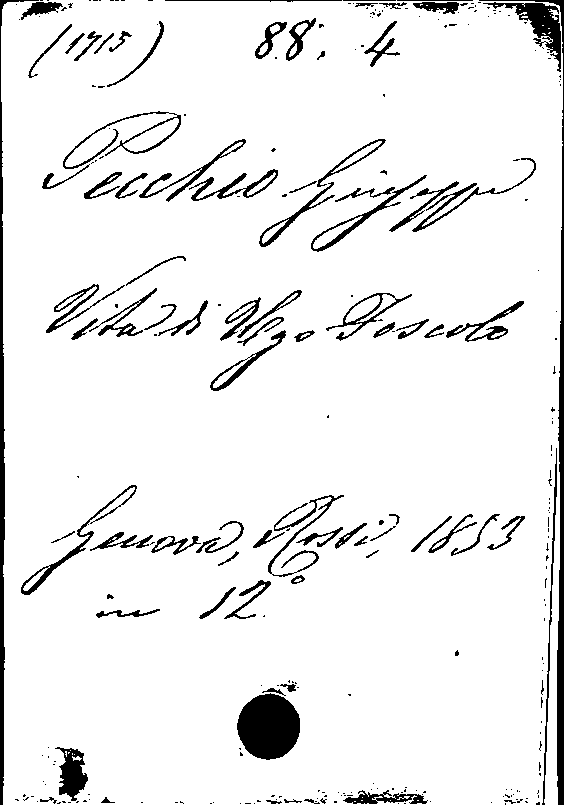 (1715) 88. 4
Pecchio Giuseppe
Vita di Ugo Foscolo
Genova, Rossi, 1853
in 12°